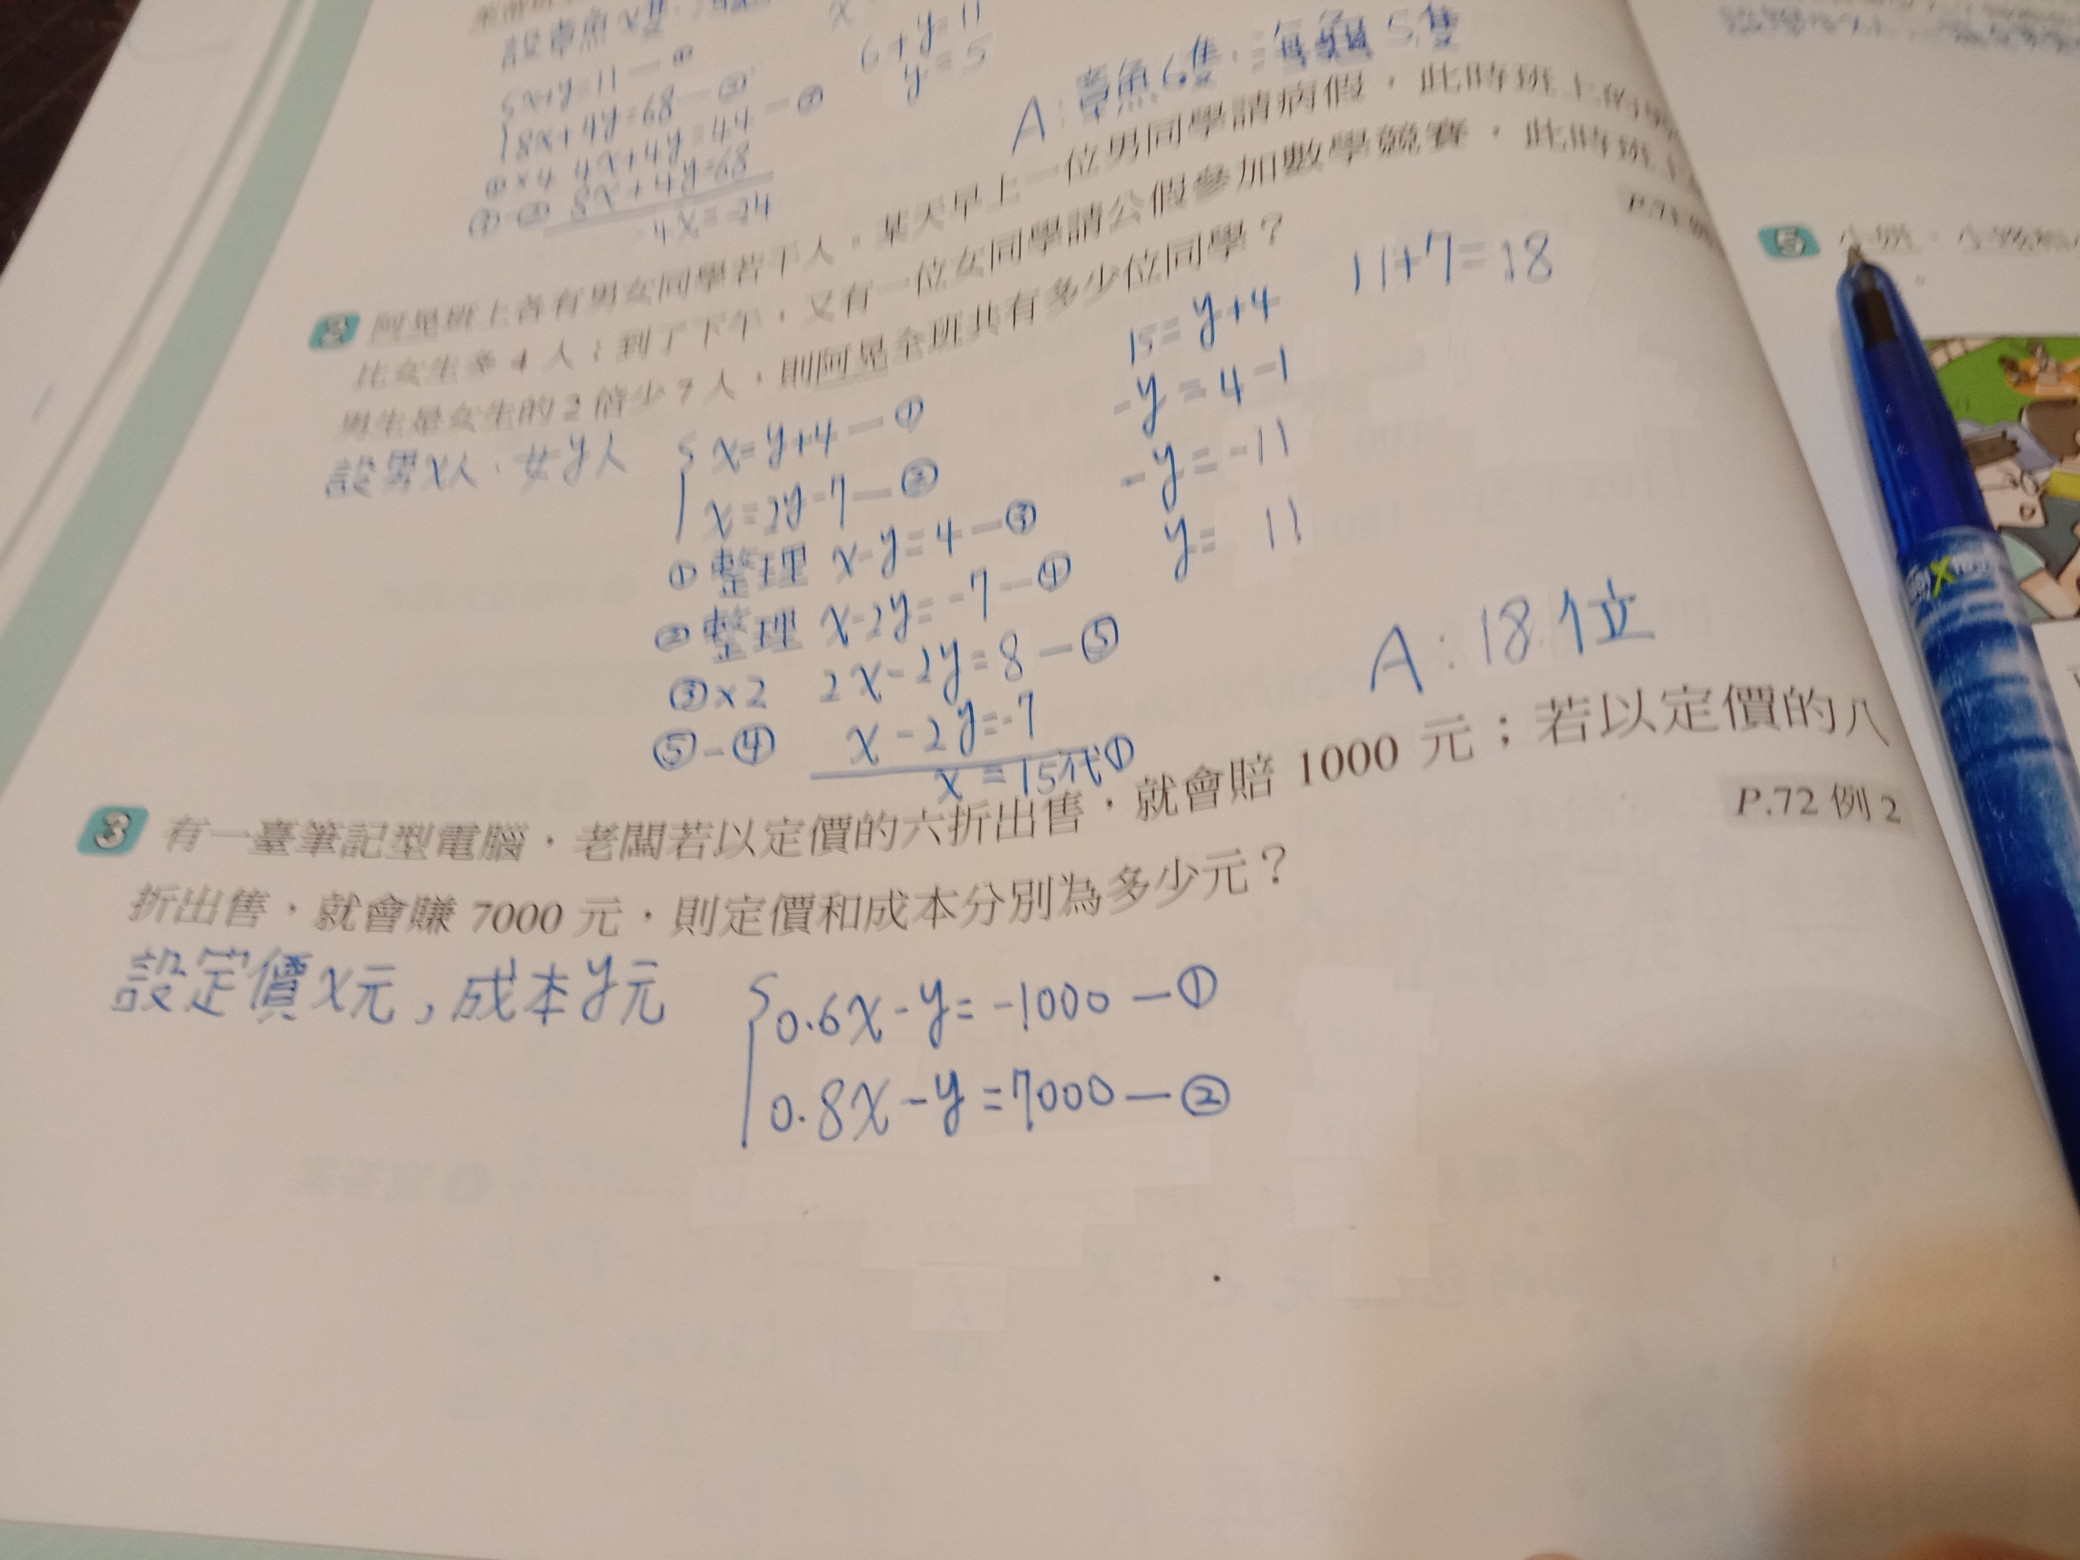 設章魚x隻
x+y=11—①
8x+4y=68—②
①×4 4x+4y=44—③
③-② 8x+4y=68
-4x=-24
6+y=11
y=5
A:章魚6隻,海龜5隻
2 阿晃班上各有男女同學若干人。某天早上一位男同學請病假,此時班上的男
比女生多4人;到了下午,又有一位女同學請公假參加數學競賽,此時班上
男生是女生的2倍少7人,則阿晃全班共有多少位同學?
設男x人、女y人
x=y+4—①
x=2y-7—②
①整理 x-y=4—③
②整理 x-2y=-7—④
③×2 2x-2y=8—⑤
⑤-④ x-2y=-7
x=15代①
15=y+4
-y=4-1
-y=-11
y= 11
11+7=18
A:18位
3 有一臺筆記型電腦,老闆若以定價的六折出售,就會賠 1000 元;若以定價的八
折出售,就會賺 7000 元,則定價和成本分別為多少元?
P.72 例 2
設定價x元,成本y元
0.6x-y=-1000—①
0.8x-y=7000—②
5